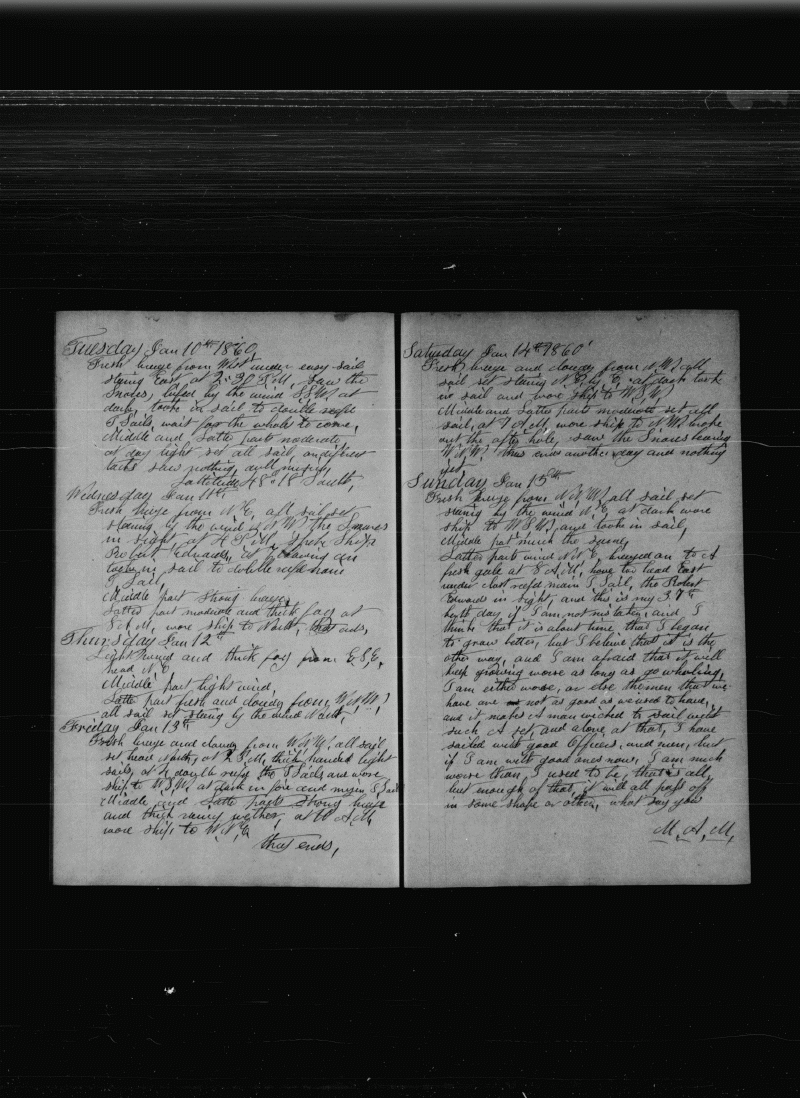 Tuesday Jan 10th 1860,
Fresh breeze from West under easy sail
stering East, at 2-30 P.M, saw the
Snares, lufed by the wind SSW, at
dark, took in sail to double reefd
T Sails, wait for the whale to come,
Middle and Latter parts moderate,
at day light set all sail, on different
tacks saw nothing,
Lattitude 48°18 South,
Wednesday Jan 11th
Fresh breze from N.E, all sail set
stering by the wind N.N.W, the Snares
in sight, at 4 P.M, spoke Ship
Robert Edwards, at
took in sail to double reefd main
T Sail,
Middle part Strong breeze,
Latter part moderate and thick fog at
8 A.M, wore ship to North, that ends,
Thursday Jan 12th
Light wind and thick fog from E.S.E,
head N.E
Middle part light wind,
Latter part fresh and cloudy from W.N.W,
all sail set stering by the wind North,
Friday Jan 13th
Fresh breeze and cloudy from W.N.W, all sail
set, head North, at 2 P.M, thick, handed light
sails, at 4 double reefd the T Sails and wore
ship to W.S.W, at dark in fore and mizen T Sail
Middle and Latter parts Strong breeze
and thick rainy wether, at 10 A.M,
wore ship to W.N.W,
thus ends,
Saturday Jan 14th 1860
Fresh breeze and cloudy from N.W, all
sail set stering N.E by E, at dark took
in sail and wore ship to W.S.W,
Middle and Latter parts moderate set all
sail, at 7 A.M, wore ship to N.W, broke
out the after hole, saw the Snares bearing
W.N.W, thus ends another day and nothing
yet,
Sunday Jan 15th
Fresh breeze from N.N.W, all sail set
stering by the wind N.E, at dark wore
ship to W.S.W, and took in sail,
Middle part much the same,
Latter part wind N.N.E, breezed on to A
fresh gale at 8 A.M, hove too head East
under close reefd main T Sail, the Robert
Edward in sight, and this is my 37th
birth day if I am not mistaken, and I
think that it is about time that I began
to grow better, but I believe that it is the
other way, and I am afraid that it will
keep growing worse as long as I go whaling,
I am either worse, or else the men that we
have are not as good as we used to have,
and it makes A man wicked to sail with
such A set, and alone at that, I have
sailed with good Officers, and men, but
if I am with good ones now, I am much
worse than I used to be, that is all,
but enough of that, it will all pass off
in some shape or other, what say you
M. A. M,